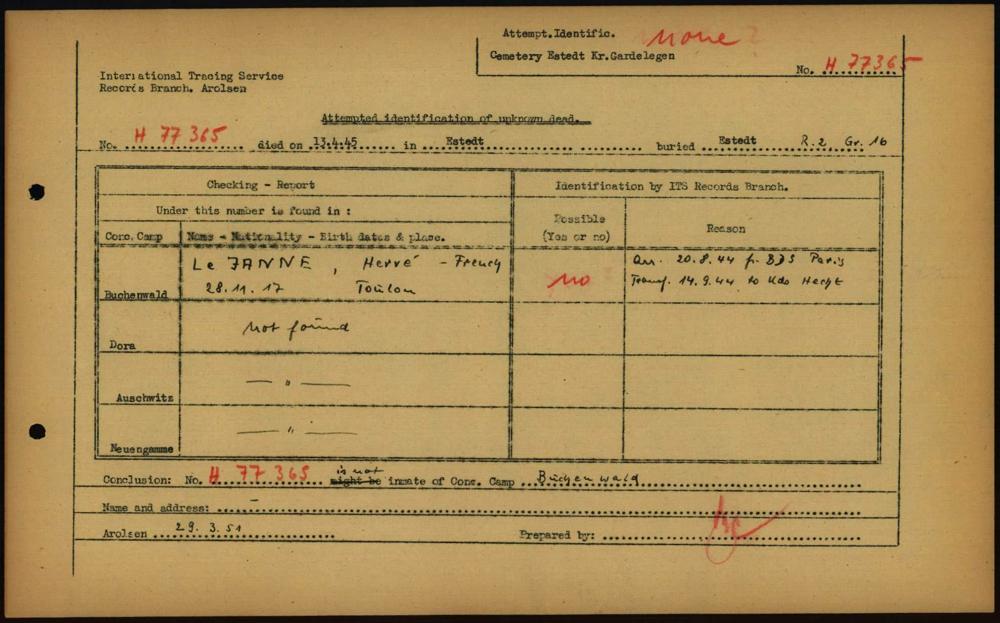 Attempt.Identific. None ?
Cemetery Estedt Kr.Gardelegen
No. H 77365
International Tracing Service
Records Branch. Arolsen
Attempted identification of unknown dead.
No. H 77 365 died on 13.4.45 in Estedt buried Estedt R.2 Gr. 16
Checking - Report
Identification by ITS Records Branch.
Under this number is found in :
Possible
(Yes or no)
Reason
Conc. Camp
Name - Nationality - Birth dates & place.
Le JANNE, Hervé - French
28.11.17 Toulon
Buchenwald
no
arr. 20.8.44 fr. BDS Paris
Transf. 14.9.44 to Kdo Hecht
not found
Dora
— " —
Auschwitz
— " —
Neuengamme
Conclusion: No. H 77 365 is not might be inmate of Conc. Camp Buchenwald
Name and address: -
Arolsen 29. 3. 51
Prepared by: